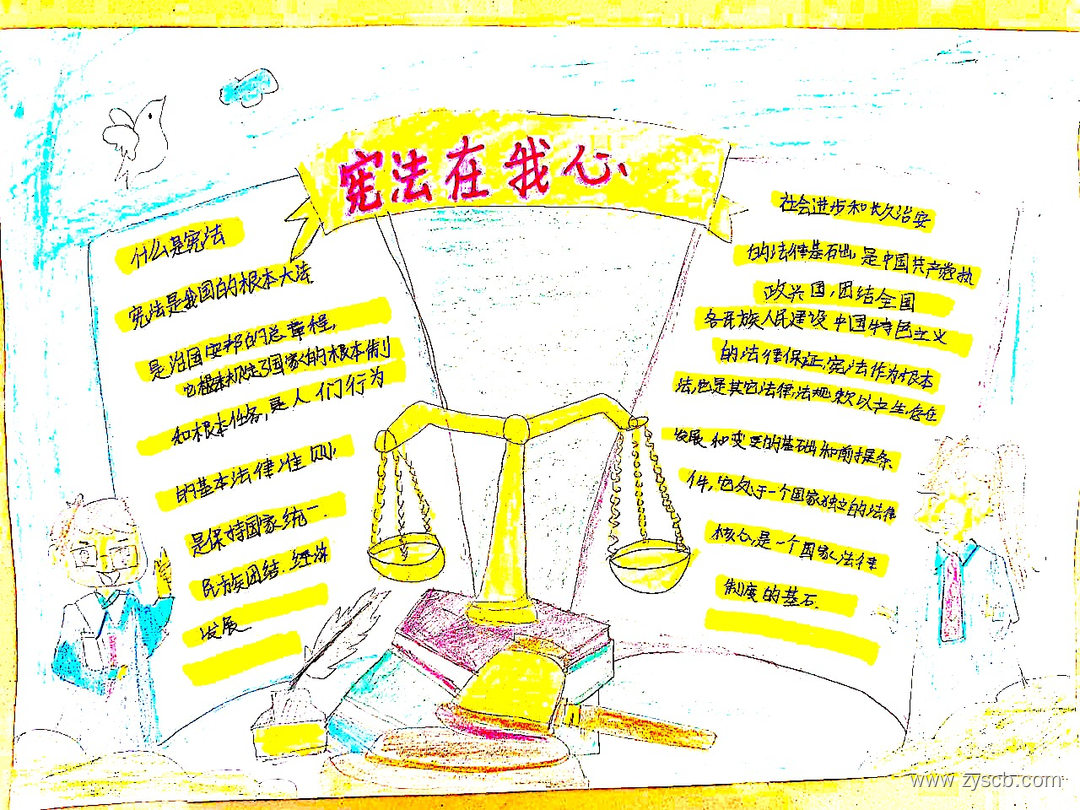 宪法在我心
什么是宪法
宪法是我国的根本大法
是治国安邦的总章程,
它根本规定了国家的根本制
和根本任务,是人们行为
的基本法律准则,
是保持国家统一.
民族团结.经济
发展
社会进步和长久治安
的法律基石出,是中国共产党执
政兴国,团结全国
各民族人民建设中国特色主义
的法律保证,宪法作为根本
法,也是其它法律,法规
发展和变更的基础和前提条
件,它处于一个国家独立的法律
核心,是一个国家法律
制度的基石.
www.zyscb.com